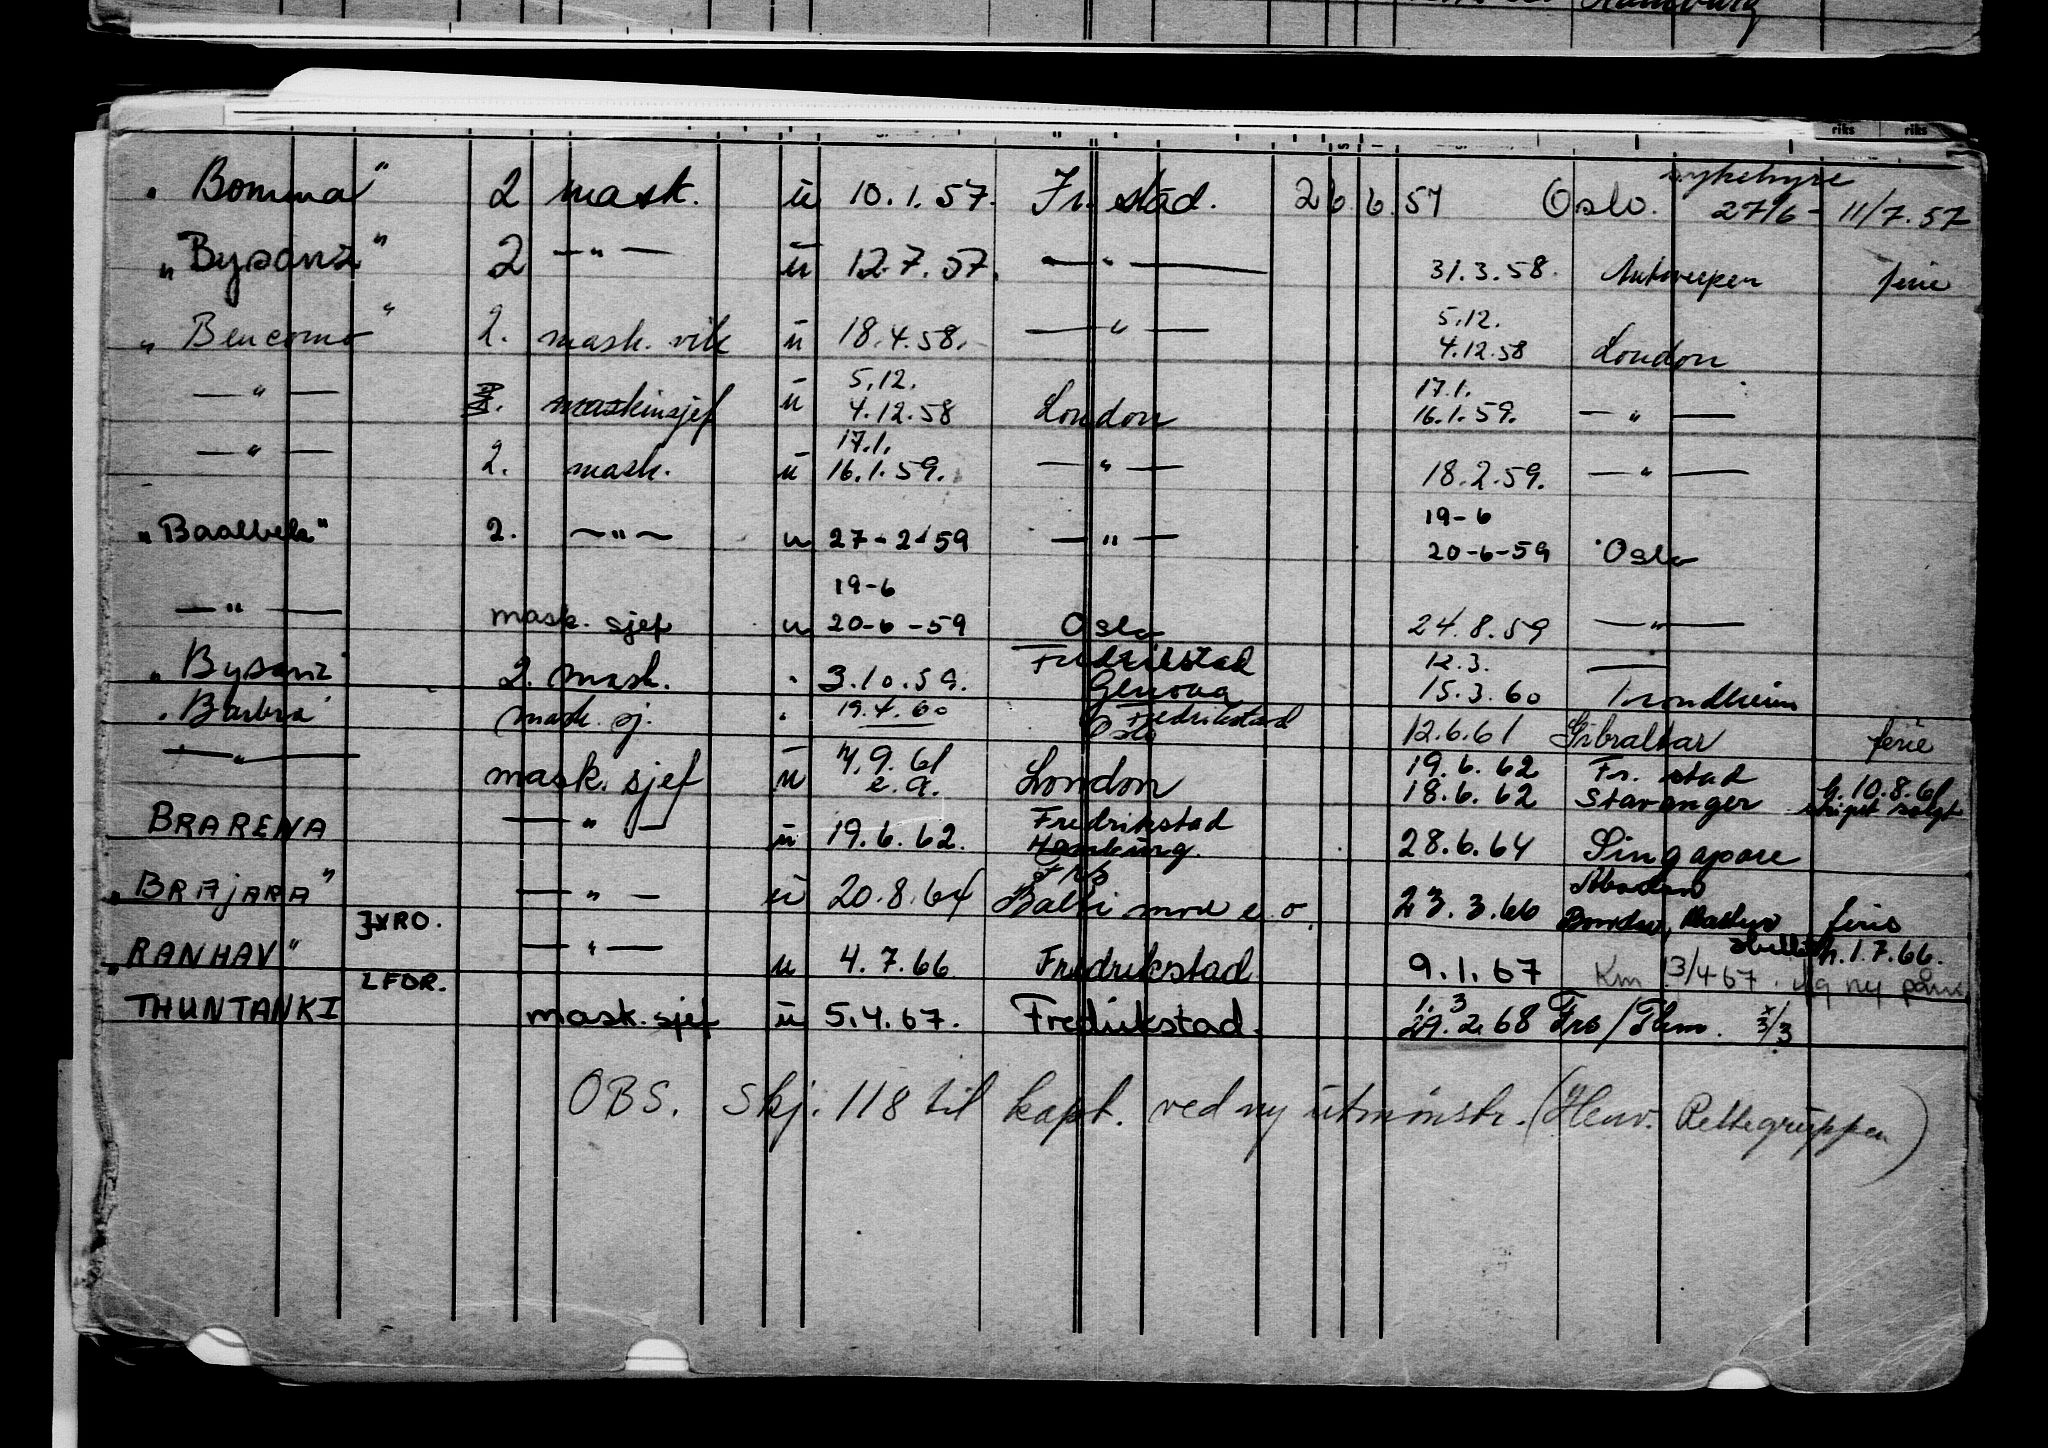 Hamburg
riks riks
"Bomma" 2 mask. ü 10.1.57. Fr. stad. 26 6 57 Oslo. sykehyre 27/6 - 11/7.57
"Bysanz" 2 — " — ü 12.7.57. — " — 31.3.58. Antwerpen ferie
"Bencomo" 2. mask. vik ü 18.4.58. — " — 5.12. 4.12.58 London
— " — maskinsjef ü 5.12. 4.12.58 London 17.1. 16.1.59. — " —
— " — 2. mask. ü 17.1. 16.1.59. — " — 18.2.59. — " —
"Baalbek" 2. — " — u 27-2-59 — " — 19-6 20-6-59 Oslo
— " — mask. sjef u 19-6 20-6-59 Oslo 24.8.59 — " —
"Bysanz" 2. mask. " 3.10.59. Fredrikstad Genova 12.3. 15.3.60 — Trondheim
"Barbra" mask. sj. " 19.4.60 Fredrikstad Oslo 12.6.61 Gibraltar ferie
— " — mask. sjef ü 7.9.61 e.a. London 19.6.62 18.6.62 Fr. stad Stavanger h. 10.8.61 skipet solgt
BRARENA — " — ü 19.6.62. Fredrikstad Hamburg. 28.6.64 Singapore
"BRAJARA" — " — ü 20.8.64 Frs Balti mor e.o. 23.3.66 Abadan Bandar Mashur ferie
JXRO.
"RANHAV" — " — u 4.7.66 Fredrikstad 9.1.67 h. 1.7.66. Km 13/4 67. ny
LFOR.
THUNTANKI mask. sjef ü 5.4.67. Fredrikstad. 1. 3 29.2.68 Frs/Thm. x 3/3
OBS. Skj. 118 til kapt. ved ny utmønstr. (Henv. Rettegruppen)